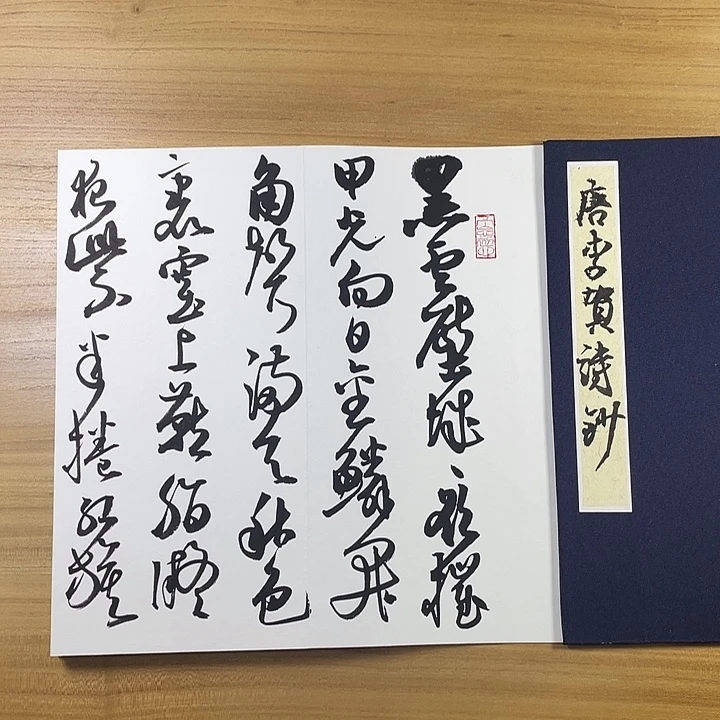 唐李賀詩鈔
黑雲壓城々欲摧
甲光向日金鱗開
角聲滿天秋色
裏塞上燕脂凝
夜紫半捲紅旗